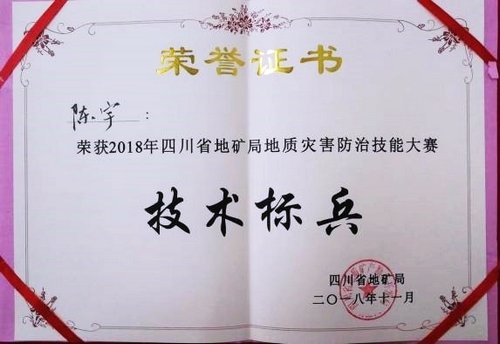 荣誉证书
陈宇：
荣获2018年四川省地矿局地质灾害防治技能大赛
技术标兵
四川省地矿局
二〇一八年十一月